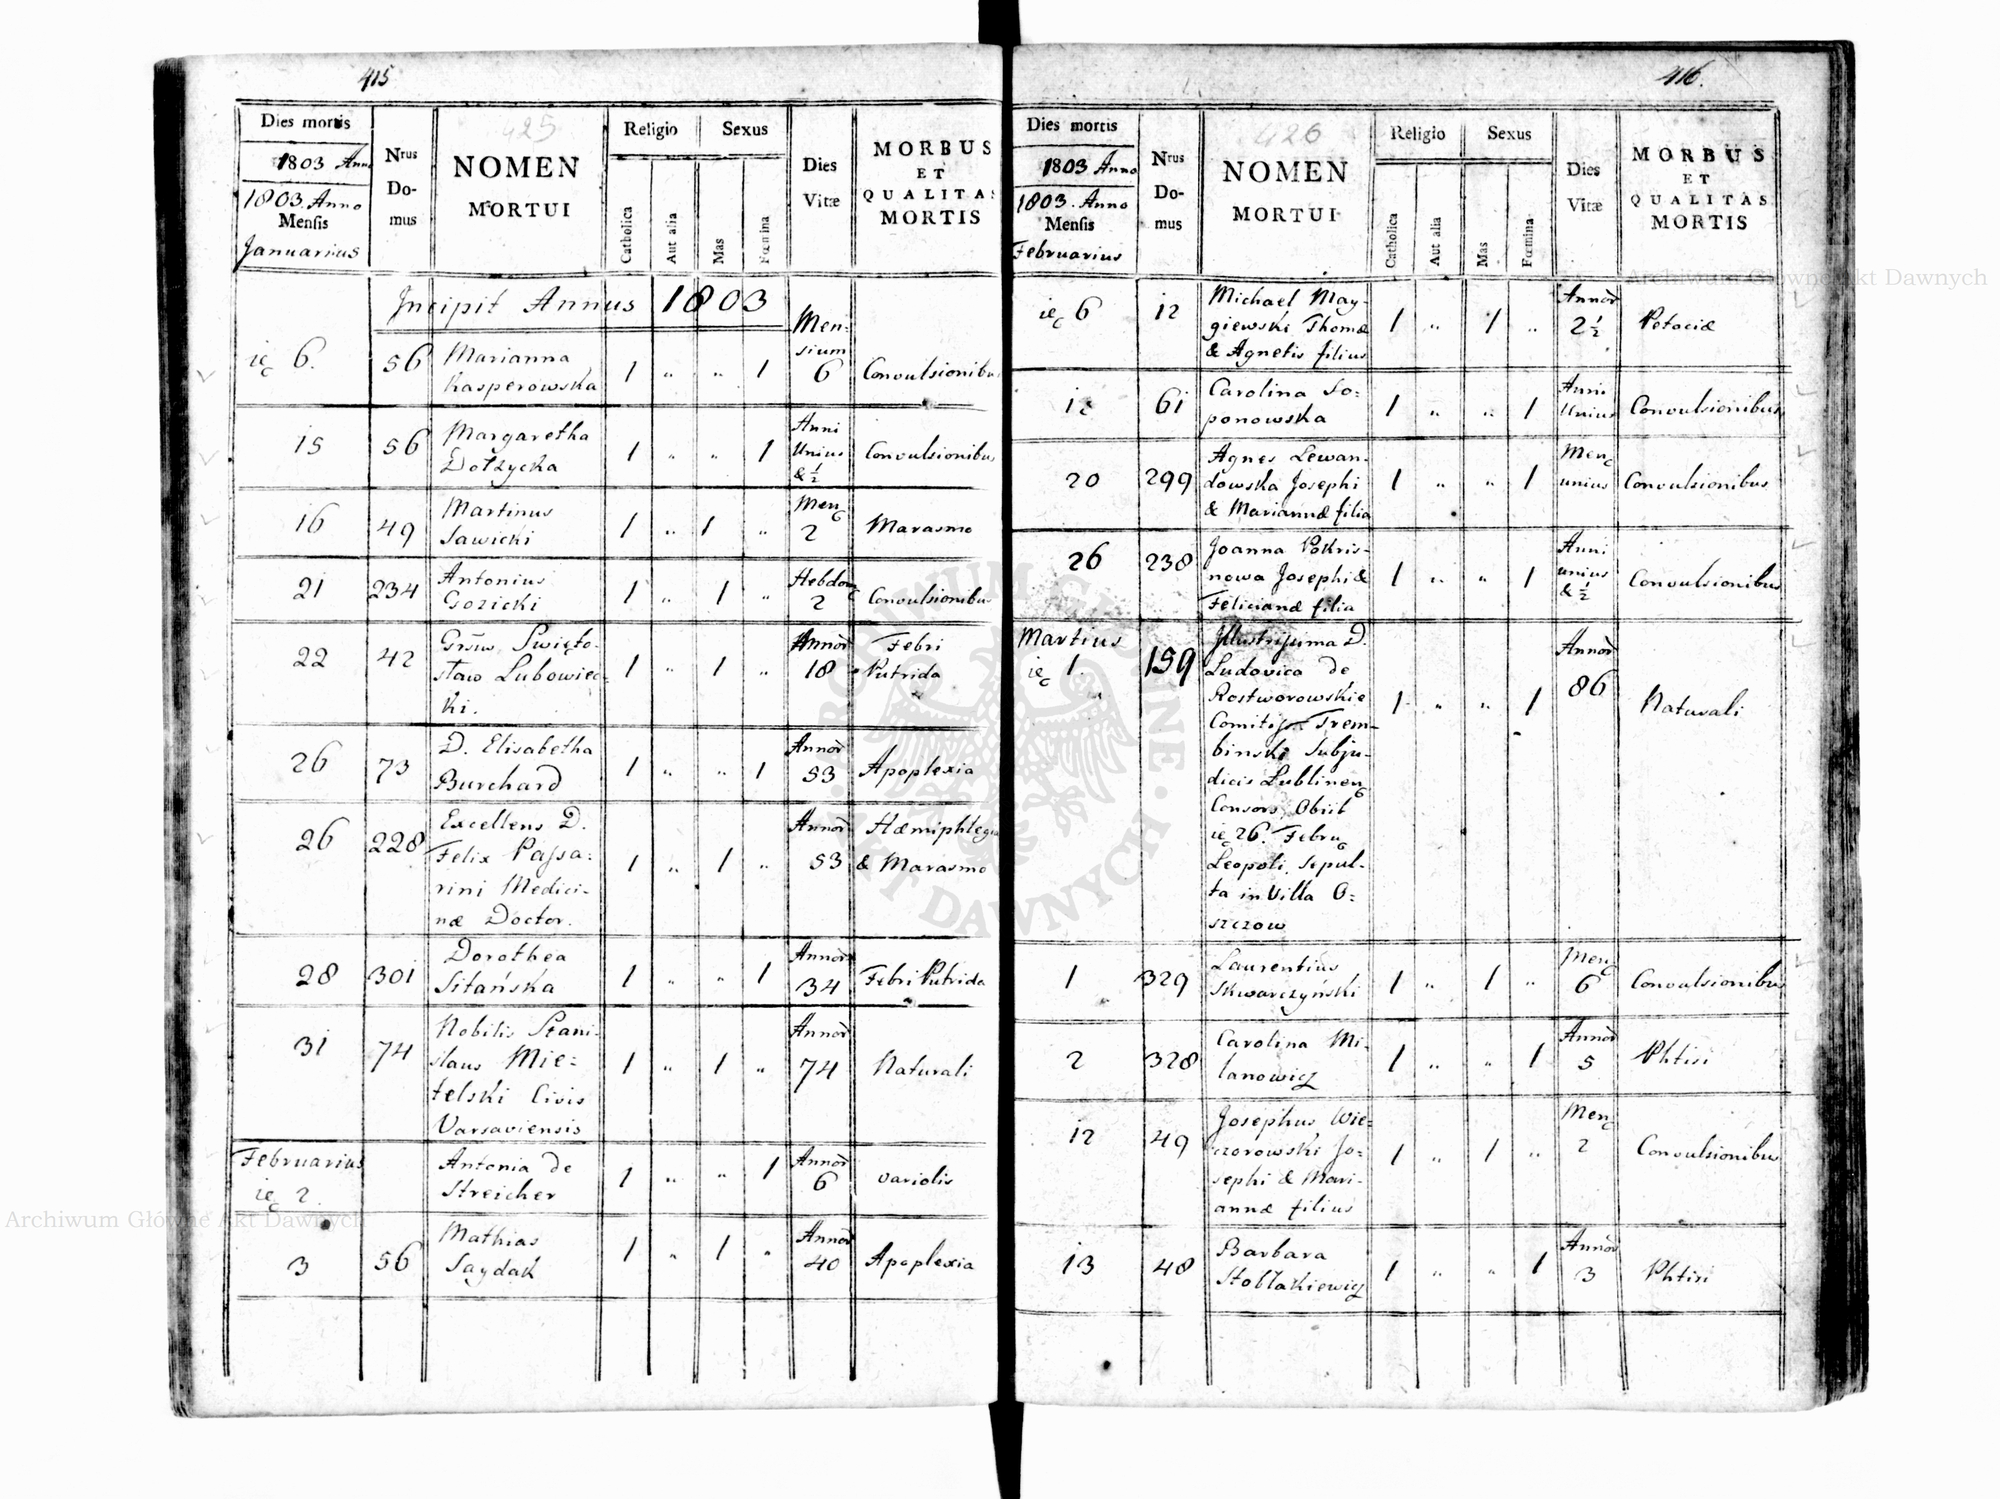 415
Dies mortis
1803 Anno
1803. Anno
Mensis
Januarius
Nrus
Do-
mus
425
NOMEN
MORTUI
Religio
Sexus
Catholica
Aut alia
Mas
Fœmina
Dies
Vitæ
MORBUS
ET
QUALITAS
MORTIS
Incipit Annus 1803
ię 6. 56 Marianna
Kasperowska 1 " " 1 Men-
sium
6 Convulsionibus
15 56 Margaretha
Dołzycka 1 " " 1 Anni
Unius
& ½ Convulsionibus
16 49 Martinus
Sawicki 1 " 1 " Menς
2 Marasmo
21 234 Antonius
Gozicki 1 " 1 " Hebdomς
2 Convulsionibus
22 42 Swięto-
sław Lubowiec-
ki. 1 " 1 " Annor
18 Febri
Putrida
26 73 D. Elisabetha
Burchard 1 " " 1 Annor
53 Apoplexia
26 228 Excellens D.
Felix Passa-
rini Medici-
næ Doctor. 1 " 1 " Annor
53 Hæmiphlegia
& Marasmo
28 301 Dorothea
Sitańska 1 " " 1 Annor
34 Febri Putrida
31 74 Nobilis Stani-
slaus Mie-
telski Civis
Varsaviensis 1 " 1 " Annor
74 Naturali
Februarius
ię 2. Antonia de
Streicher 1 " " 1 Annor
6 variolis
3 56 Mathias
Saydak 1 " 1 " Annor
40 Apoplexia
416.
Dies mortis
1803 Anno
1803. Anno
Mensis
Februarius
Nrus
Do-
mus
426
NOMEN
MORTUI
Religio
Sexus
Catholica
Aut alia
Mas
Fœmina
Dies
Vitæ
MORBUS
ET
QUALITAS
MORTIS
ię 6 12 Michael May-
giewski Thomæ
& Agnetis filius 1 " 1 " Annor
2 ½ Petociæ
12 61 Carolina So-
ponowska 1 " " 1 Anni
Unius Convulsionibus
20 299 Agnes Lewan-
dowska Josephi
& Mariannæ filia 1 " " 1 Menς
unius Convulsionibus
26 238 Joanna Pokris-
nowa Josephi &
Felicianæ filia 1 " " 1 Anni
unius
& ½ Convulsionibus
Martius
ię 1. 159 Illustrissima D.
Ludovica de
Rostworowskie
Comitissa Trem-
binski Subju-
dicis Lublinenς
Consors, Obiit
ię 26. Februς
Leopoli, sepul-
ta in Villa O-
szczow 1 " " 1 Annor
86 Naturali
1 329 Laurentius
Skwarczyński 1 " 1 " Menς
6 Convulsionibus
2 328 Carolina Mi-
lanowicz 1 " " 1 Annor
5 Phtisi
12 49 Josephus Wie-
czorowski Jo-
sephi & Mari-
annæ filius 1 " 1 " Menς
2 Convulsionibus
13 48 Barbara
Stobłakiewicz 1 " " 1 Annor
3 Phtisi
Archiwum Główne Akt Dawnych
Archiwum Główne Akt Dawnych
ARCHIWUM GŁÓWNE
AKT DAWNYCH